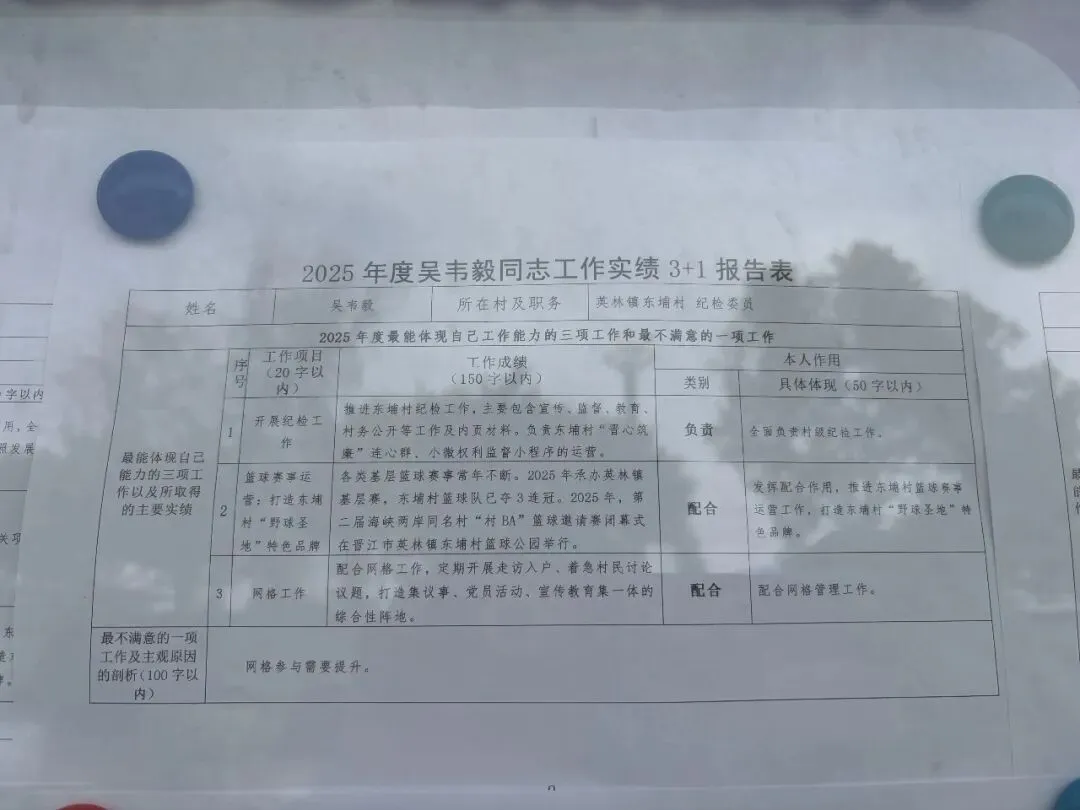 2025 年度吴韦毅同志工作实绩 3+1 报告表
姓名
吴韦毅
所在村及职务
英林镇东埔村 纪检委员
2025 年度最能体现自己工作能力的三项工作和最不满意的一项工作
最能体现自己
能力的三项工
作以及所取得
的主要实绩
序
号
工作项目
（20 字以
内）
工作成绩
（150 字以内）
本人作用
类别
具体体现（50 字以内）
1
开展纪检工
作
推进东埔村纪检工作，主要包含宣传、监督、教育、
村务公开等工作及内页材料。负责东埔村“晋心筑
廉”连心群、小微权利监督小程序的运营。
负责
全面负责村级纪检工作。
2
篮球赛事运
营：打造东埔
村“野球圣
地”特色品牌
各类基层篮球赛事常年不断。2025 年承办英林镇
基层赛，东埔村篮球队已夺 3 连冠。2025 年，第
二届海峡两岸同名村“村 BA”篮球邀请赛闭幕式
在晋江市英林镇东埔村篮球公园举行。
配合
发挥配合作用，推进东埔村篮球赛事
运营工作，打造东埔村“野球圣地”特
色品牌。
3
网格工作
配合网格工作，定期开展走访入户、着急村民讨论
议题，打造集议事、党员活动、宣传教育集一体的
综合性阵地。
配合
配合网格管理工作。
最不满意的一项
工作及主观原因
的剖析（100 字以
内）
网格参与需要提升。
字以内
用，全
照发展
关项
东